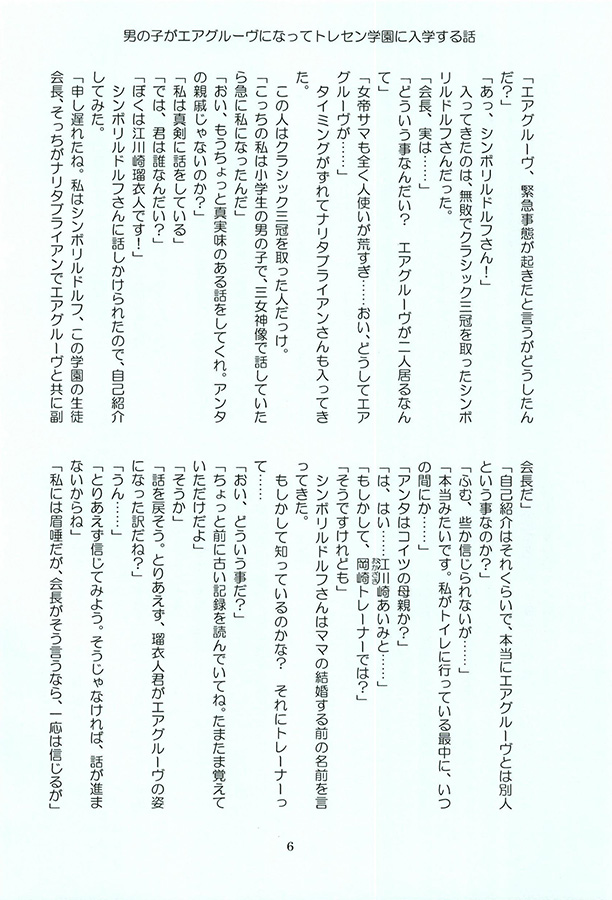 男の子がエアグルーヴになってトレセン学園に入学する話
「エアグルーヴ、緊急事態が起きたと言うがどうしたん
だ？」
「あっ、シンボリルドルフさん！」
　入ってきたのは、無敗でクラシック三冠を取ったシンボ
リルドルフさんだった。
「会長、実は……」
「どういう事なんだい？　エアグルーヴが二人居るなん
て」
「女帝サマも全く人使いが荒すぎ……おい、どうしてエア
グルーヴが……」
　タイミングがずれてナリタブライアンさんも入ってき
た。
　この人はクラシック三冠を取った人だっけ。
「こっちの私は小学生の男の子で、三女神像で話していた
ら急に私になったんだ」
「おい、もうちょっと真実味のある話をしてくれ。アンタ
の親戚じゃないのか？」
「私は真剣に話をしている」
「では、君は誰なんだい？」
「ぼくは江川崎瑠衣人です！」
　シンボリルドルフさんに話しかけられたので、自己紹介
してみた。
「申し遅れたね。私はシンボリルドルフ、この学園の生徒
会長、そっちがナリタブライアンでエアグルーヴと共に副
会長だ」
「自己紹介はそれくらいで、本当にエアグルーヴとは別人
という事なのか？」
「ふむ、些か信じられないが……」
「本当みたいです。私がトイレに行っている最中に、いつ
の間にか……」
「アンタはコイツの母親か？」
「は、はい……江川崎あいみと……」
「もしかして、岡崎トレーナーでは？」
「そうですけれども」
　シンボリルドルフさんはママの結婚する前の名前を言
ってきた。
　もしかして知っているのかな？　それにトレーナーっ
て……
「おい、どういう事だ？」
「ちょっと前に古い記録を読んでいてね。たまたま覚えて
いただけだよ」
「そうか」
「話を戻そう。とりあえず、瑠衣人君がエアグルーヴの姿
になった訳だね？」
「うん……」
「とりあえず信じてみよう。そうじゃなければ、話が進ま
ないからね」
「私には眉唾だが、会長がそう言うなら、一応は信じるが」
6